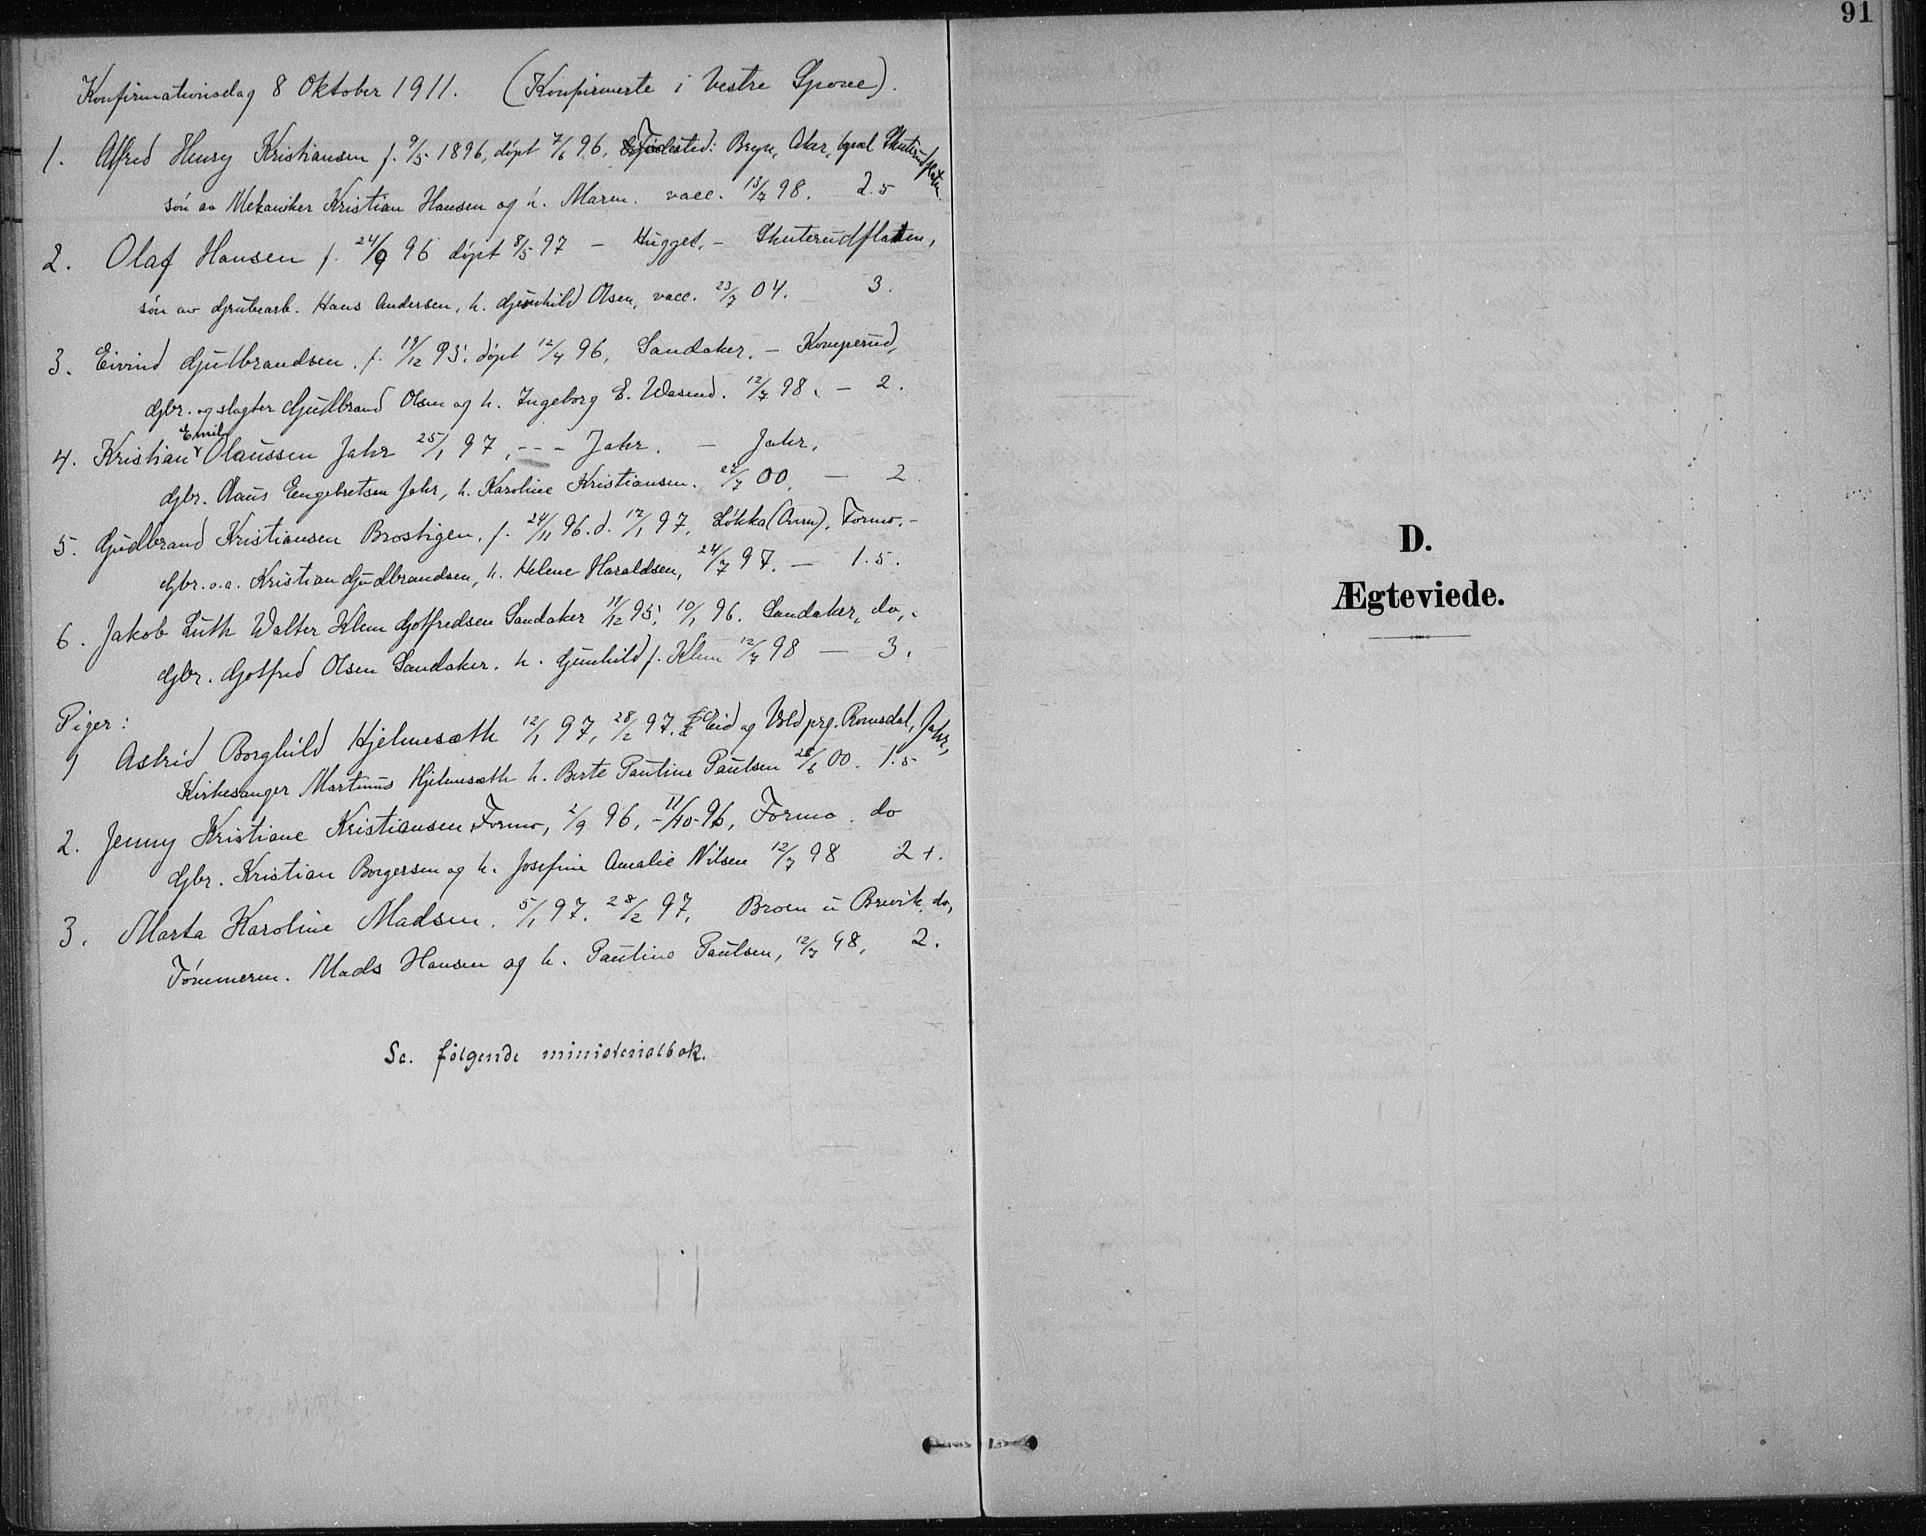 91
Konfirmationsdag 8 Oktober 1911. (Konfirmerte i Vestre Spone).
1. Alfred Henry Kristiansen f. 9/5 1896, døpt 7/6 96, Fødested: Bryn, Aker, bopæl Skuterudflaten
søn av Mekaniker Kristian Hansen og h. Maren. vacc. 13/7 98. 2.5
2. Olaf Hansen f. 24/9 96 døpt 8/5 97 - Hugget, - Skuterudflatten,
søn av Grubearb. Hans Andersen, h. Gunhild Olsen, vacc. 23/7 04. 3.
3. Eivind Gulbrandsen. f. 19/12 95. døpt 12/4 96, Sandaker. - Komperud,
Gbr. og slagter Gudbrand Olsen og h. Ingeborg E. 12/7 98. - 2.
4. Kristian Emil Olaussen Jahr 25/1 97, - - - Jahr. - Jahr.
Gbr. Olaus Engebretsen Jahr, h. Karoline Kristiansen. 27/7 00. - 2
5. Gudbrand Kristiansen Brostigen. f. 24/11 96. d. 17/1 97, Løkka, Formo. -
Gbr. o.a. Kristian Gudbrandsen, h. Helene Haraldsen, 24/7 97. - 1.5.
6. Jakob Luth Walter Klem Gotfredsen Sandaker 11/12 95, 10/1 96. Sandaker, do,.
Gbr. Gotfred Olsen Sandaker. h. Gunhild f. Klem 12/7 98 - 3.
Piger:
1 Astrid Borghild Hjelmesæth 12/1 97, 28/2 97. Eid og Vold prg. Romsdal, Jahr,
Kirkesanger Martinus Hjelmesæth h. Berte Pauline Paulsen 28/6 00. 1.5
2. Jenny Kristiane Kristiansen Formo, 2/9 96, - 11/10 - 96, Formo. do
Gbr. Kristian Borgersen og h. Josefine Amalie Nilsen 12/7 98 2+.
3. Marta Karoline Madsen. 5/1 97. 28/2 97, Broen u Brevik, do,
Tømmerm. Mads Hansen og h. Pauline Paulsen, 12/7 98, 2.
Se. følgende ministerialbok.
D.
Ægteviede.